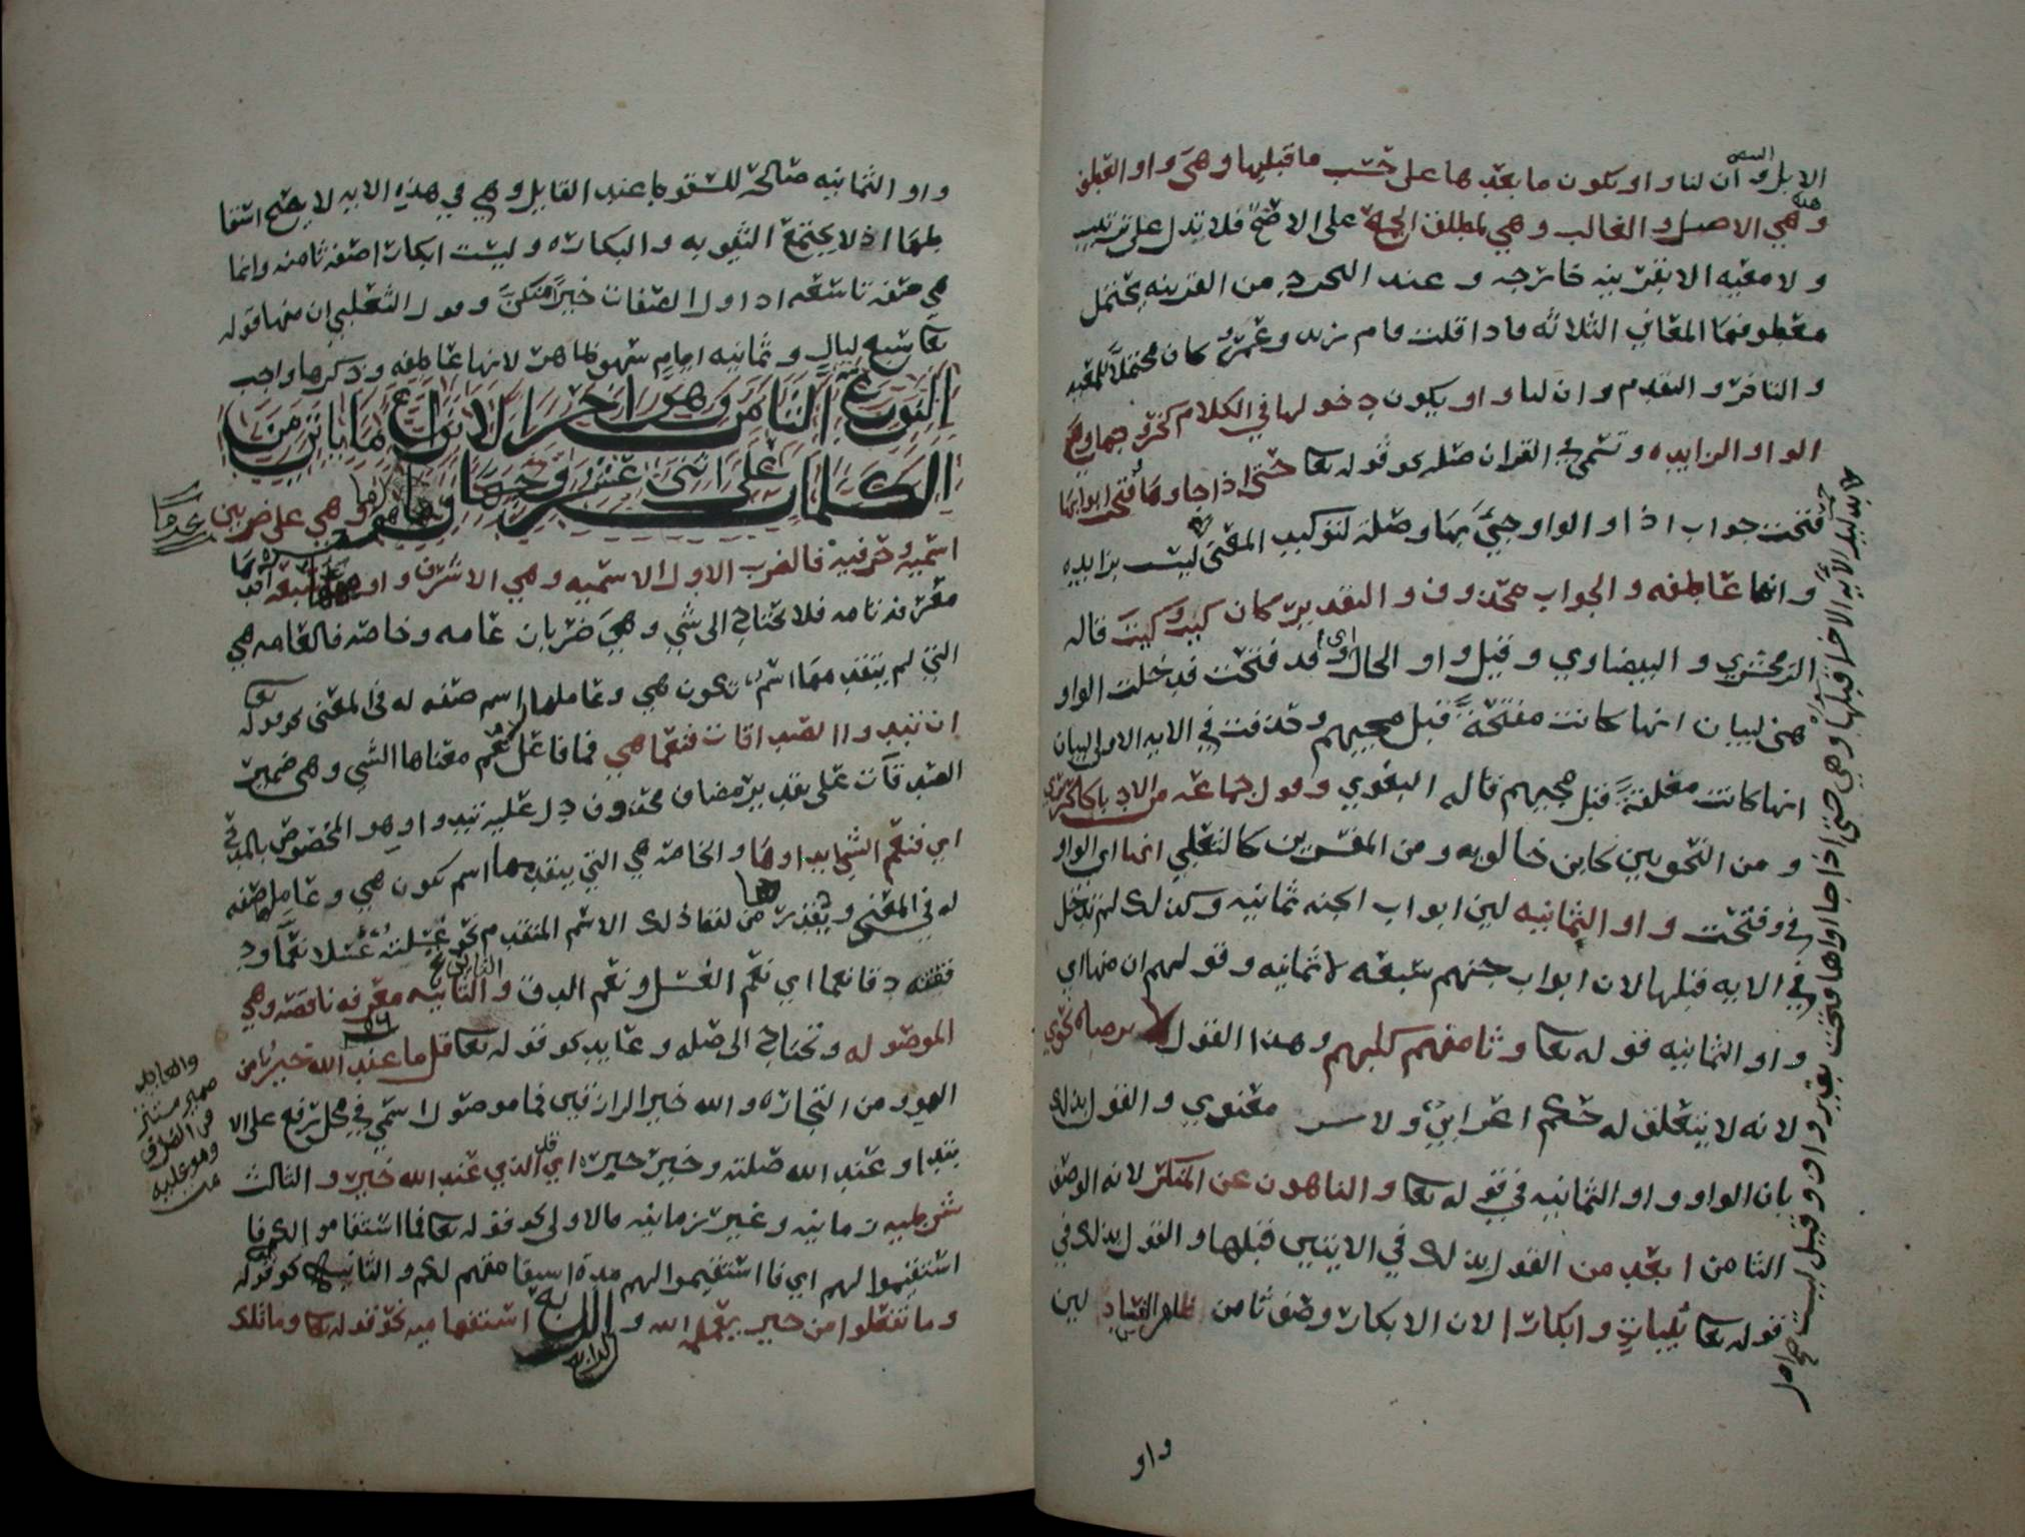 الابل وان لنا واو يكون ما بعدها على حسب ما قبلها وهي واو العطف
وهي الاصل والغالب وهي لمطلق الجمع على الاصح فلا تدل على ترتيب
ولا معيه الا بقرينه خارجه وعند التجرد من القرينه يحتمل
معطوفها المعاني الثلاثه فاذا قلت قام زيد وعمرو كان محتملا للمعيه
والتاخر والتقدم وان لنا واو يكون دخولها في الكلام كخروجها وهي
الواو الزايده وتسمى في القران صله نحو قوله تعا حتى اذا جاوها وفتحت ابوابها
ففتحت جواب اذا والواو جيء بها وصلة لتوكيد المعنى ليست بزايده
وانها عاطفه والجواب محذوف والتقدير كان كيت وكيت قاله
الزمخشري والبيضاوي وقيل واو الحال اي وقد فتحت فدخلت الواو
هنى لبيان انها كانت مفتحة قبل مجيهم وحذفت في الايه الاولى لبيان
انها كانت مغلقة قبل مجيهم قاله البغوي وقول جماعه من الادبا كالحريري
ومن النحويين كابن خالويه ومن المفسرين كالثعلبي انها اي الواو
في وفتحت واو الثمانيه لين ابواب الجنه ثمانيه وكذلك لم تدخل
في الايه قبلها لان ابواب جهنم سبعه لا ثمانيه وقولهم ان منها اي
واو الثمانيه قوله تعا وثامنهم كلبهم وهذا القول لا يرضاه نحوي
لانه لا يتعلق له حكم اعرابي ولا سر معنوي والقول بذلك
بان الواو واو الثمانيه في قوله تعا والناهون عن المنكر لانه الوصف
الثامن ابعد من القول بذلك في الايتين قبلها والقول بذلك في
قوله تعا ثيبات وابكارا لان الابكار وصف ثامن ظاهر الفساد لين
واو
واو الثمانيه صالحة للسقوط عند القايل وهي في هذه الايه لا يصح اسقا
طها اذ لا تجتمع الثيوبه والبكاره وليست ابكارا صفه ثامنه وانما
هي صفه تاسعه اذ اول الصفات خيرا منكن وقول الثعلبي ان منها قوله
تعا سبع ليال وثمانيه ايام سهو ظاهر لانها عاطفه وذكرها واجب
النوع الثامن وهو اخر الانواع ما ياتي من
الكلمات على اثنى عشر وجها وهو ما وهي على ضربين
اسميه وحرفيه فالضرب الاول الاسميه وهي الاشرف واوجهها سبعه احدها
معرفه تامه فلا تحتاج الى شي وهي ضربان عامه وخاصه فالعامه هي
التي لم يتقدمها اسم تكون هي وعاملها اسم صفه له في المعنى نحو قوله تعا
ان تبدوا الصدقات فنعما هي فما فاعل نعم معناها الشي وهي ضمير
الصدقات على تقدير مضاف محذوف دل عليه تبدوا وهو المخصوص بالمدح
اي فنعم الشي ابداوها والخاصه هي التي يتقدمها اسم تكون هي وعاملها صفه
له في المعنى وتقدر من لفظ ذلك الاسم المتقدم نحو غسلته غسلا نعما ود
ققته دقا نعما اي نعم الغسل ونعم الدق والثانيه معرفه ناقصه وهي
الموصوله وتحتاج الى صله وعايد نحو قوله تعا قل ما عند الله خير من
اللهو ومن التجاره والله خير الرازقين فما موصول اسمي في محل رفع على الا
بتدا وعند الله صلته وخير خبره اي قل الذي عند الله خير والثالث
شرطيه زمانيه وغير زمانيه فالاولى نحو قوله تعا فما استقاموا لكم فا
استقيموا لهم اي فا استقيموا لهم مدة استقامتهم لكم والثانيه نحو قوله
وما تفعلوا من خير يعلمه الله والرابع استفهاميه نحو قوله تعا وما تلك
والعايد
ضمير مستتر
في الظرف